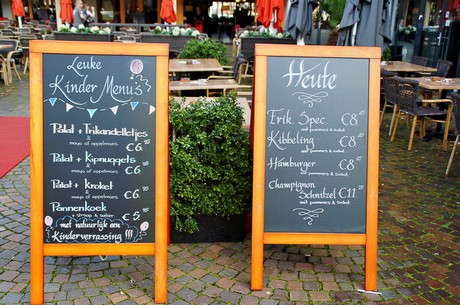 Leuke
Kinder Menu's
Patat + Frikandelletjes
mayo of appelmoes € 6
Patat + Kipnuggets
mayo of appelmoes € 6
Patat + Kroket
€ 6
Pannenkoek
+ stroop & suiker € 5
met natuurlijk een
Kinderverrassing !!!
Heute
Frik Spec. € 8
met pommes & salad.
Kibbeling € 8
met pommes & salad.
Hamburger € 8
met pommes & salad.
Champignon
Schnitzel € 11
met pommes & salad.